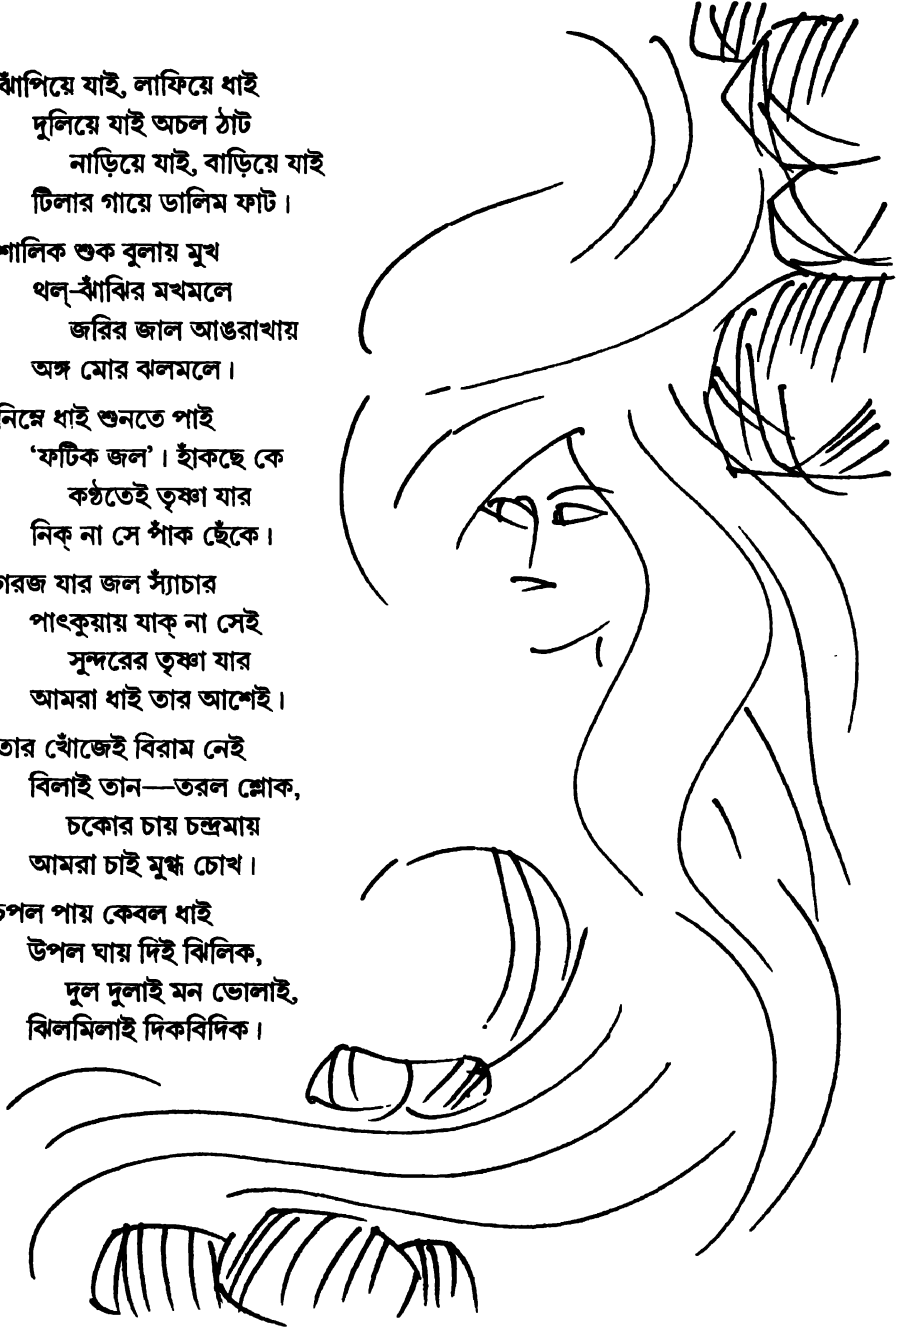 ঝাঁপিয়ে যাই, লাফিয়ে ধাই
দুলিয়ে যাই অচল ঠাট
নাড়িয়ে যাই, বাড়িয়ে যাই
টিলার গায়ে ডালিম ফাট।
শালিক শুক বুলায় মুখ
থল্-ঝাঁঝির মখমলে
জরির জাল আঙরাখায়
অঙ্গ মোর ঝলমলে।
নিম্নে ধাই শুনতে পাই
‘ফটিক জল’। হাঁকছে কে
কণ্ঠতেই তৃষ্ণা যার
নিক্ না সে পাঁক ছেঁকে।
গরজ যার জল স্যাঁচার
পাৎকুয়ায় যাক্ না সেই
সুন্দরের তৃষ্ণা যার
আমরা ধাই তার আশেই।
তার খোঁজেই বিরাম নেই
বিলাই তান—তরল শ্লোক,
চকোর চায় চন্দ্রমায়
আমরা চাই মুগ্ধ চোখ।
চপল পায় কেবল ধাই
উপল ঘায় দিই ঝিলিক,
দুল দুলাই মন ভোলাই,
ঝিলমিলাই দিকবিদিক।